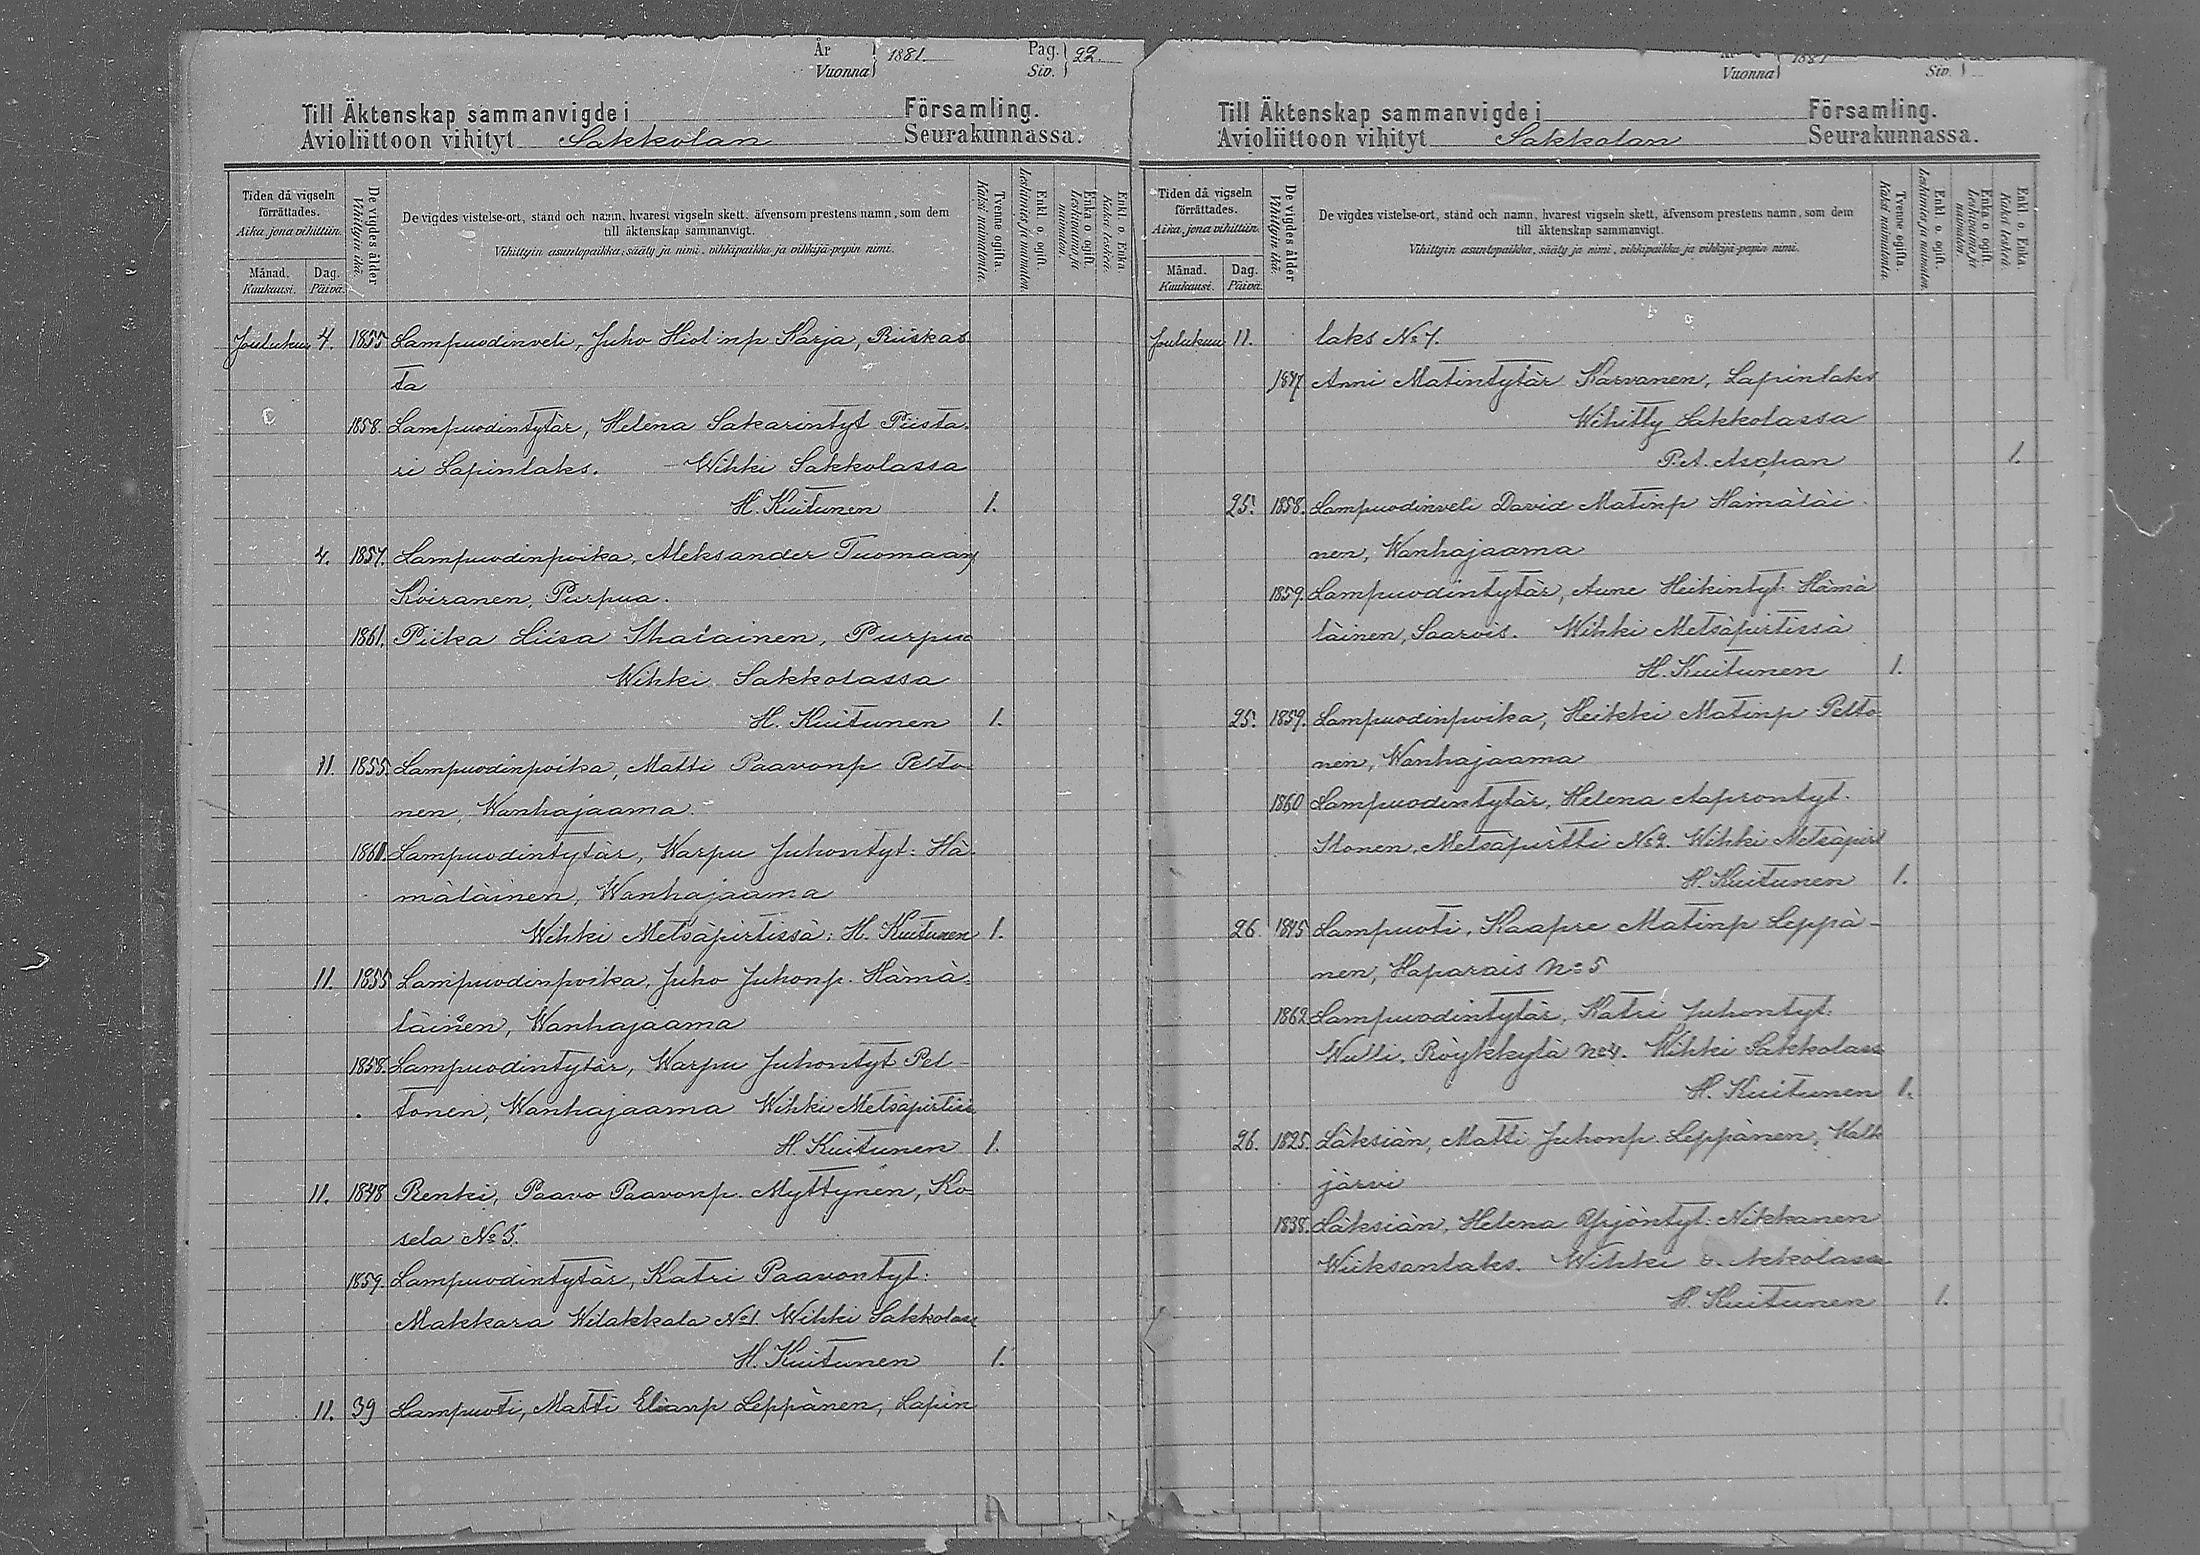 År
Vuonna 1881.
Pag.
Siv. 22.
Till Äktenskap sammanvigde i Församling.
Avioliittoon vihityt Sakkolan Seurakunnassa.
Tiden då vigseln förrättades.
Aika, jona vihittiin.
Månad. Kuukausi.
Dag. Päivä.
De vigdes ålder
Vihittyin ikä.
De vigdes vistelse-ort, stånd och namn, hvarest vigseln skett, äfvensom prestens namn, som dem
till äktenskap sammanvigt.
Vihittyin asuntopaikka, sääty ja nimi, vihkipaikka ja vihkijä-papin nimi.
Tvenne ogifta.
Kaksi naimatonta.
Enkl. o. ogift.
Leskimies ja naimaton.
Enka o ogift.
Leskivaimo ja naimaton.
Enkl. o. Enka.
Kaksi leskeä.
Joulukuu 4. 1855 Lampuodinveli, Juho Hiol:np Karja, Riiskas
ta
1858. Lampuodintytär, Helena Sakarintyt Piista-
ri Lapinlaks. Wihki Sakkolassa
H. Kuitunen 1.
4. 1857. Lampuodinpoika, Aleksander Tuomaanp
Koiranen, Purpua.
1861. Piika Liisa Ihalainen, Purpua
Wihki Sakkolassa
H. Kuitunen 1.
11. 1855. Lampuodinpoika, Matti Paavonp Pelto-
nen, Wanhajaama.
1861. Lampuodintytär, Warpu Juhontyt: Hä-
mäläinen, Wanhajaama
Wihki Metsäpirtissä: H. Kuitunen 1.
11. 1855 Lampuodinpoika, Juho Juhonp. Hämä-
läinen, Wanhajaama
1858. Lampuodintytär, Warpu Juhontyt Pel-
tonen, Wanhajaama Wihki Metsäpirtiss
H. Kuitunen 1.
11. 1848 Renki, Paavo Paavonp. Myttynen, Ko-
sela No 5.
1859. Lampuodintytär, Katri Paavontyt:
Makkara Wilakkala No 1. Wihki Sakkolass
H. Kuitunen 1.
11. 39 Lampuoti, Matti Elianp Leppänen, Lapin
Vuonna 1881
Siv.
Till Äktenskap sammanvigde i Församling.
Avioliittoon vihityt Sakkolan Seurakunnassa.
Tiden då vigseln förrättades.
Aika, jona vihittiin.
Månad. Kuukausi.
Dag. Päivä.
De vigdes ålder
Vihittyin ikä.
De vigdes vistelse-ort, stånd och namn, hvarest vigseln skett, äfvensom prestens namn, som dem
till äktenskap sammanvigt.
Vihittyin asuntopaikka, sääty ja nimi, vihkipaikka ja vihkijä-papin nimi.
Tvenne ogifta.
Kaksi naimatonta.
Enkl. o. ogift.
Leskimies ja naimaton.
Enka o ogift.
Leskivaimo ja naimaton.
Enkl o. Enka.
Kaksi leskeä.
Joulukuu 11. laks No 7.
1847 Anni Matintytär Karvanen, Lapinlaks
Wihitty Sakkolassa
P. A. Aschan 1.
25. 1858. Lampuodinveli David Matinp Hämäläi-
nen, Wanhajaama
1859. Lampuodintytär, Aune Heikintyt. Hämä
läinen, Saarois. Wihki Metsäpirtissä
H. Kuitunen 1.
25. 1859. Lampuodinpoika, Heikki Matinp Pelto
nen, Wanhajaama
1860 Lampuodintytär, Helena Aaprontyt.
Ikonen, Metsäpirtti No 2. Wihki Metsäpirt
H. Kuitunen 1.
26. 1845 Lampuoti, Kaapre Matinp Leppä-
nen, Haparais No 5
1862 Lampuodintytär, Katri Juhontyt.
Wulli, Röykkylä No 4. Wihki Sakkolass
H. Kuitunen 1.
26. 1825. Läksiän, Matti Juhonp. Leppänen, Walk
järvi
1838. Läksiän, Helena Yrjöntyt: Nikkanen
Wiiksanlaks. Wihki Sakkolassa
H. Kuitunen 1.